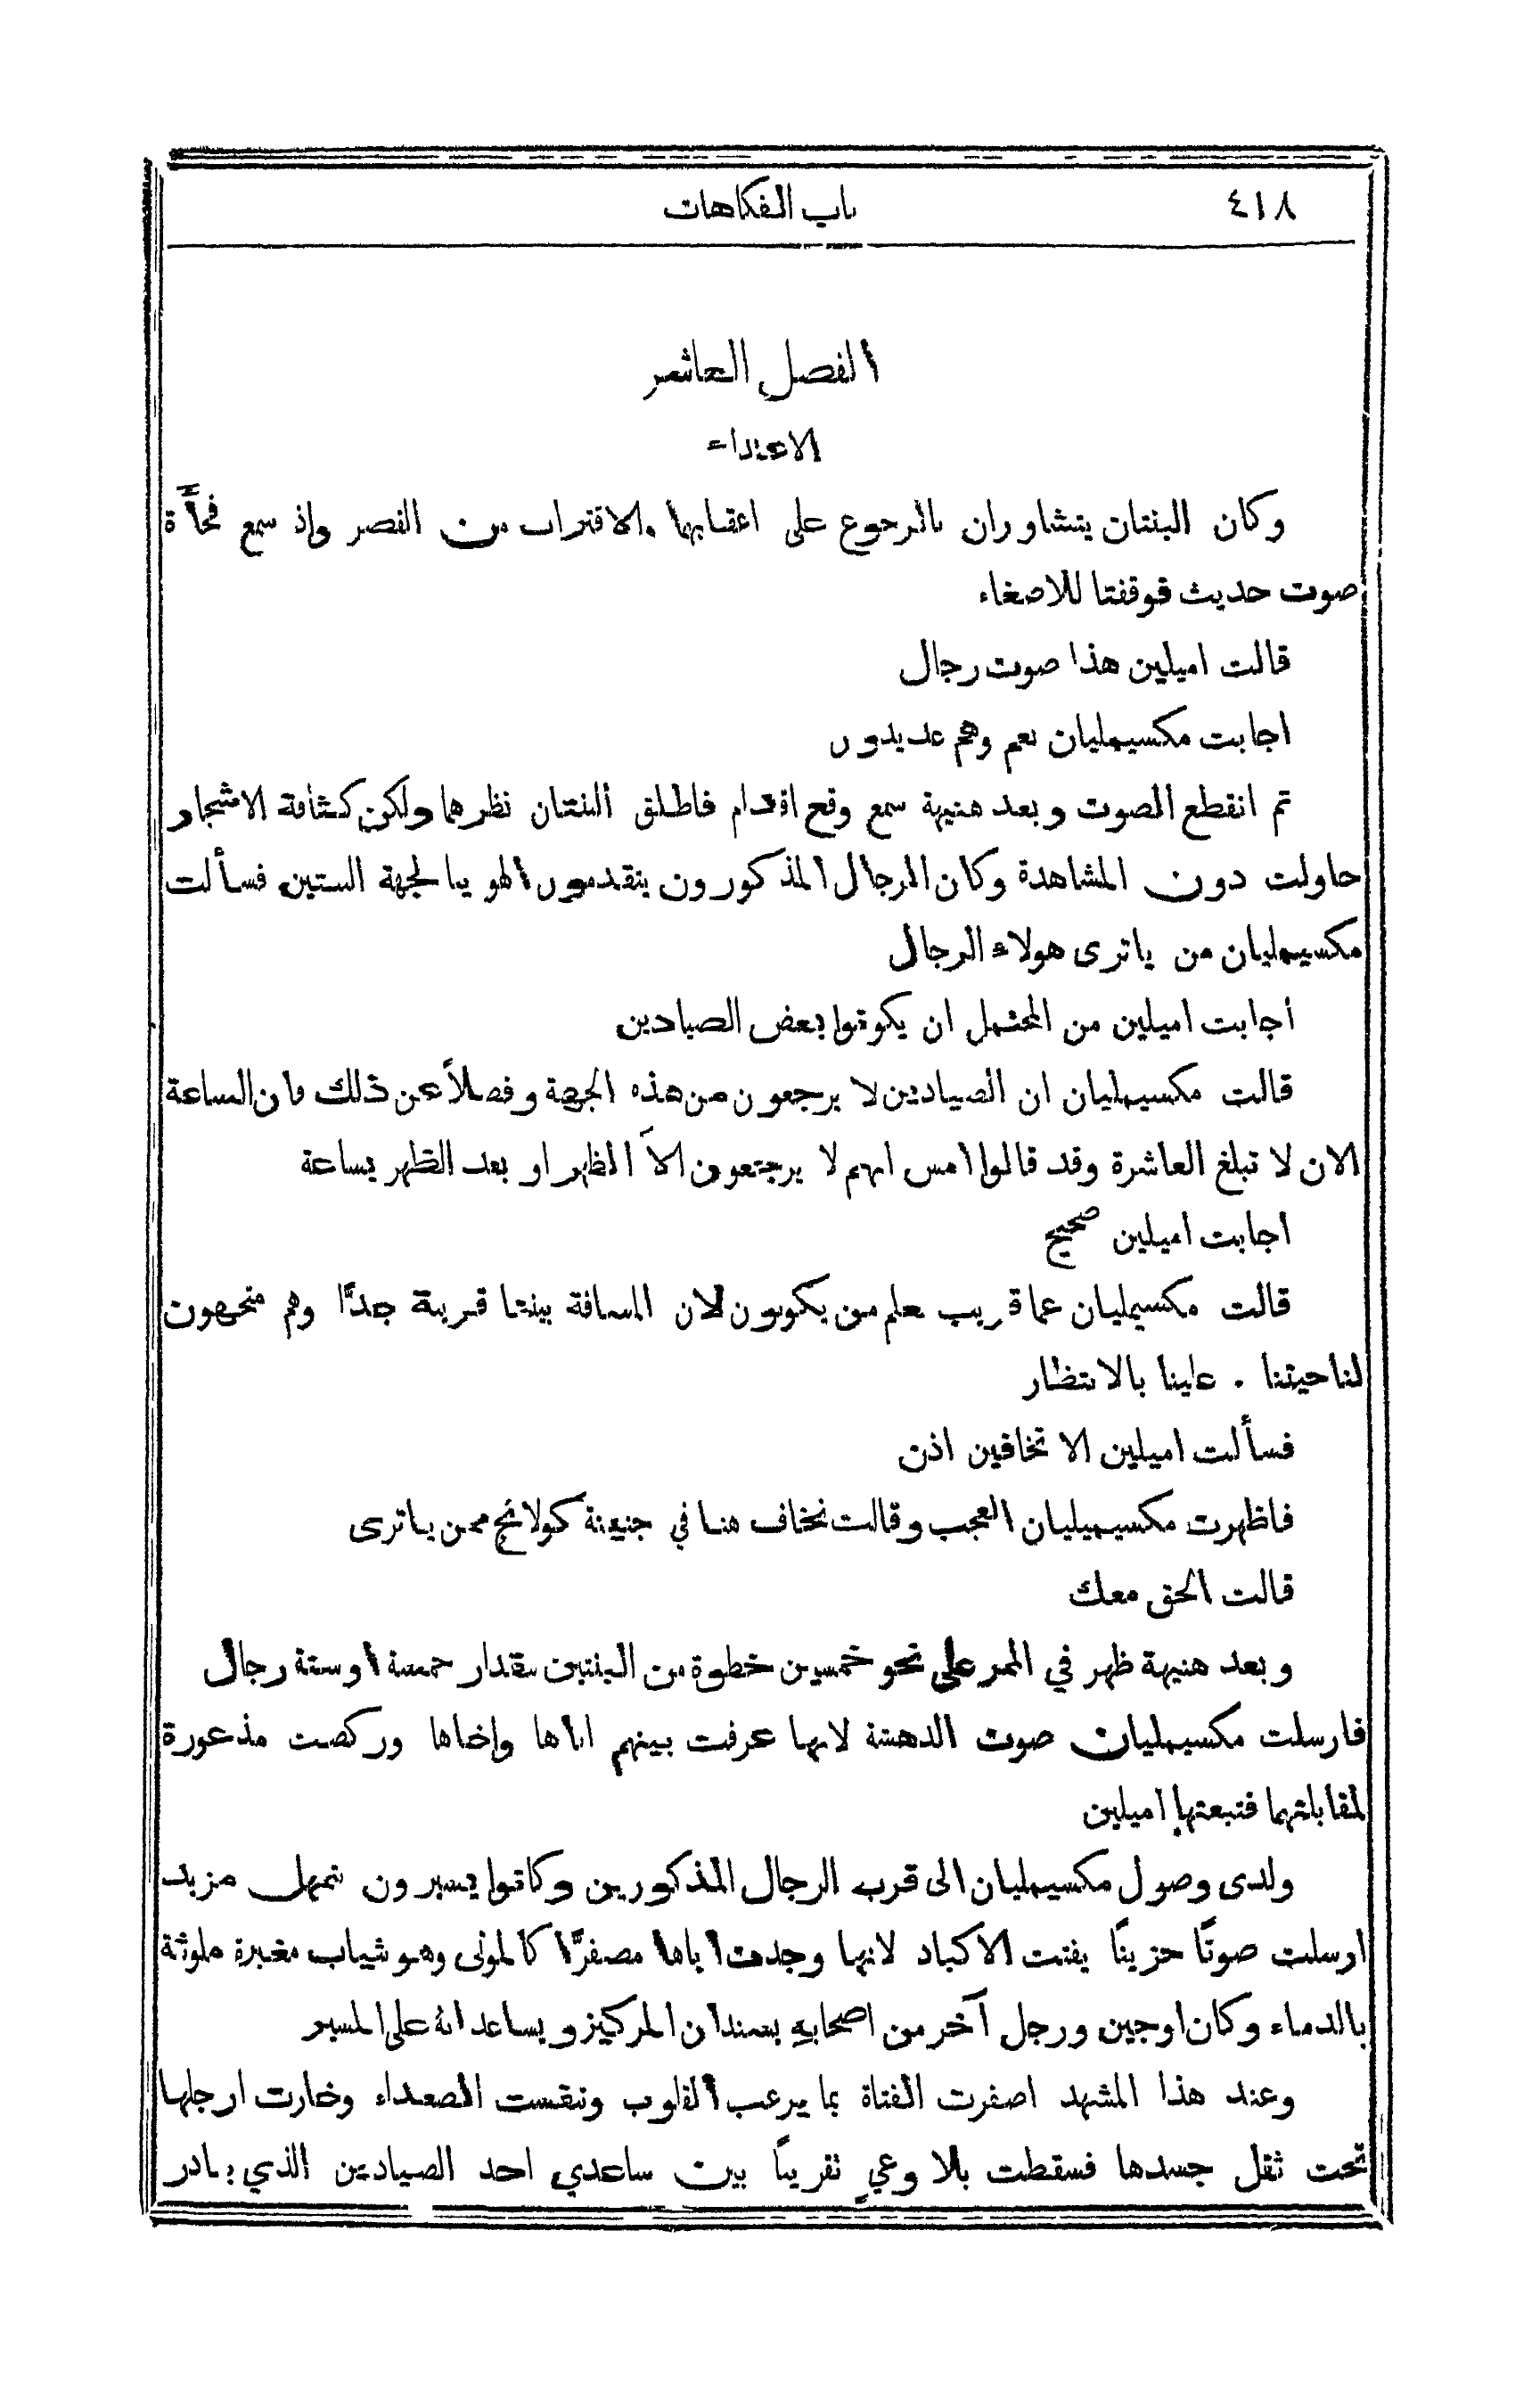 ٤١٨
باب الفكاهات
الفصل العاشر
الاعتداء
وكان البنتان يتشاوران بالرجوع على اعقابهما والاقتراب من القصر واذ سمع فجأة
صوت حديث فوقفتا للاصغاء
قالت اميلين هذا صوت رجال
اجابت مكسيمليان نعم وهم عديدون
ثم انقطع الصوت وبعد هنيهة سمع وقع اقدام فاطلق البنتان نظرهما ولكن كثافة الاشجار
حاولت دون المشاهدة وكان الرجال المذكورون يتقدمون الهويا لجهة البنتين فسألت
مكسيمليان من ياترى هولاء الرجال
اجابت اميلين من المحتمل ان يكونوا بعض الصيادين
قالت مكسيمليان ان الصيادين لا يرجعون من هذه الجهة وفضلاً عن ذلك فان الساعة
الان لا تبلغ العاشرة وقد قالوا امس انهم لا يرجعون الاَّ الظهر او بعد الظهر بساعة
اجابت اميلين صحيح
قالت مكسيمليان عما قريب نعلم من يكونون لان المسافة بيننا قريبة جدًّا وهم متجهون
لناحيتنا . علينا بالانتظار
فسألت اميلين الا تخافين اذن
فاظهرت مكسيميليان العجب وقالت نخاف هنا في جنينة كولانج ممن ياترى
قالت الحق معك
وبعد هنيهة ظهر في الممر على نحو خمسين خطوة من البنتين مقدار خمسة او ستة رجال
فارسلت مكسيمليان صوت الدهشة لانها عرفت بينهم اباها واخاها وركضت مذعورة
لمقابلتهما فتبعتها اميلين
ولدى وصول مكسيمليان الى قرب الرجال المذكورين وكانوا يسيرون بتمهل مزيد
ارسلت صوتًا حزينًا يفتت الاكباد لانها وجدت اباها مصفرًّا كالموتى وهو بثياب مغبرة ملوثة
بالدماء وكان اوجين ورجل آخر من اصحابه يسندان المركيز ويساعدانه على المسير
وعند هذا المشهد اصفرت الفتاة بما يرعب القلوب وتنفست الصعداء وخارت ارجلها
تحت ثقل جسدها فسقطت بلا وعيٍ تقريبًا بين ساعدي احد الصيادين الذي بادر